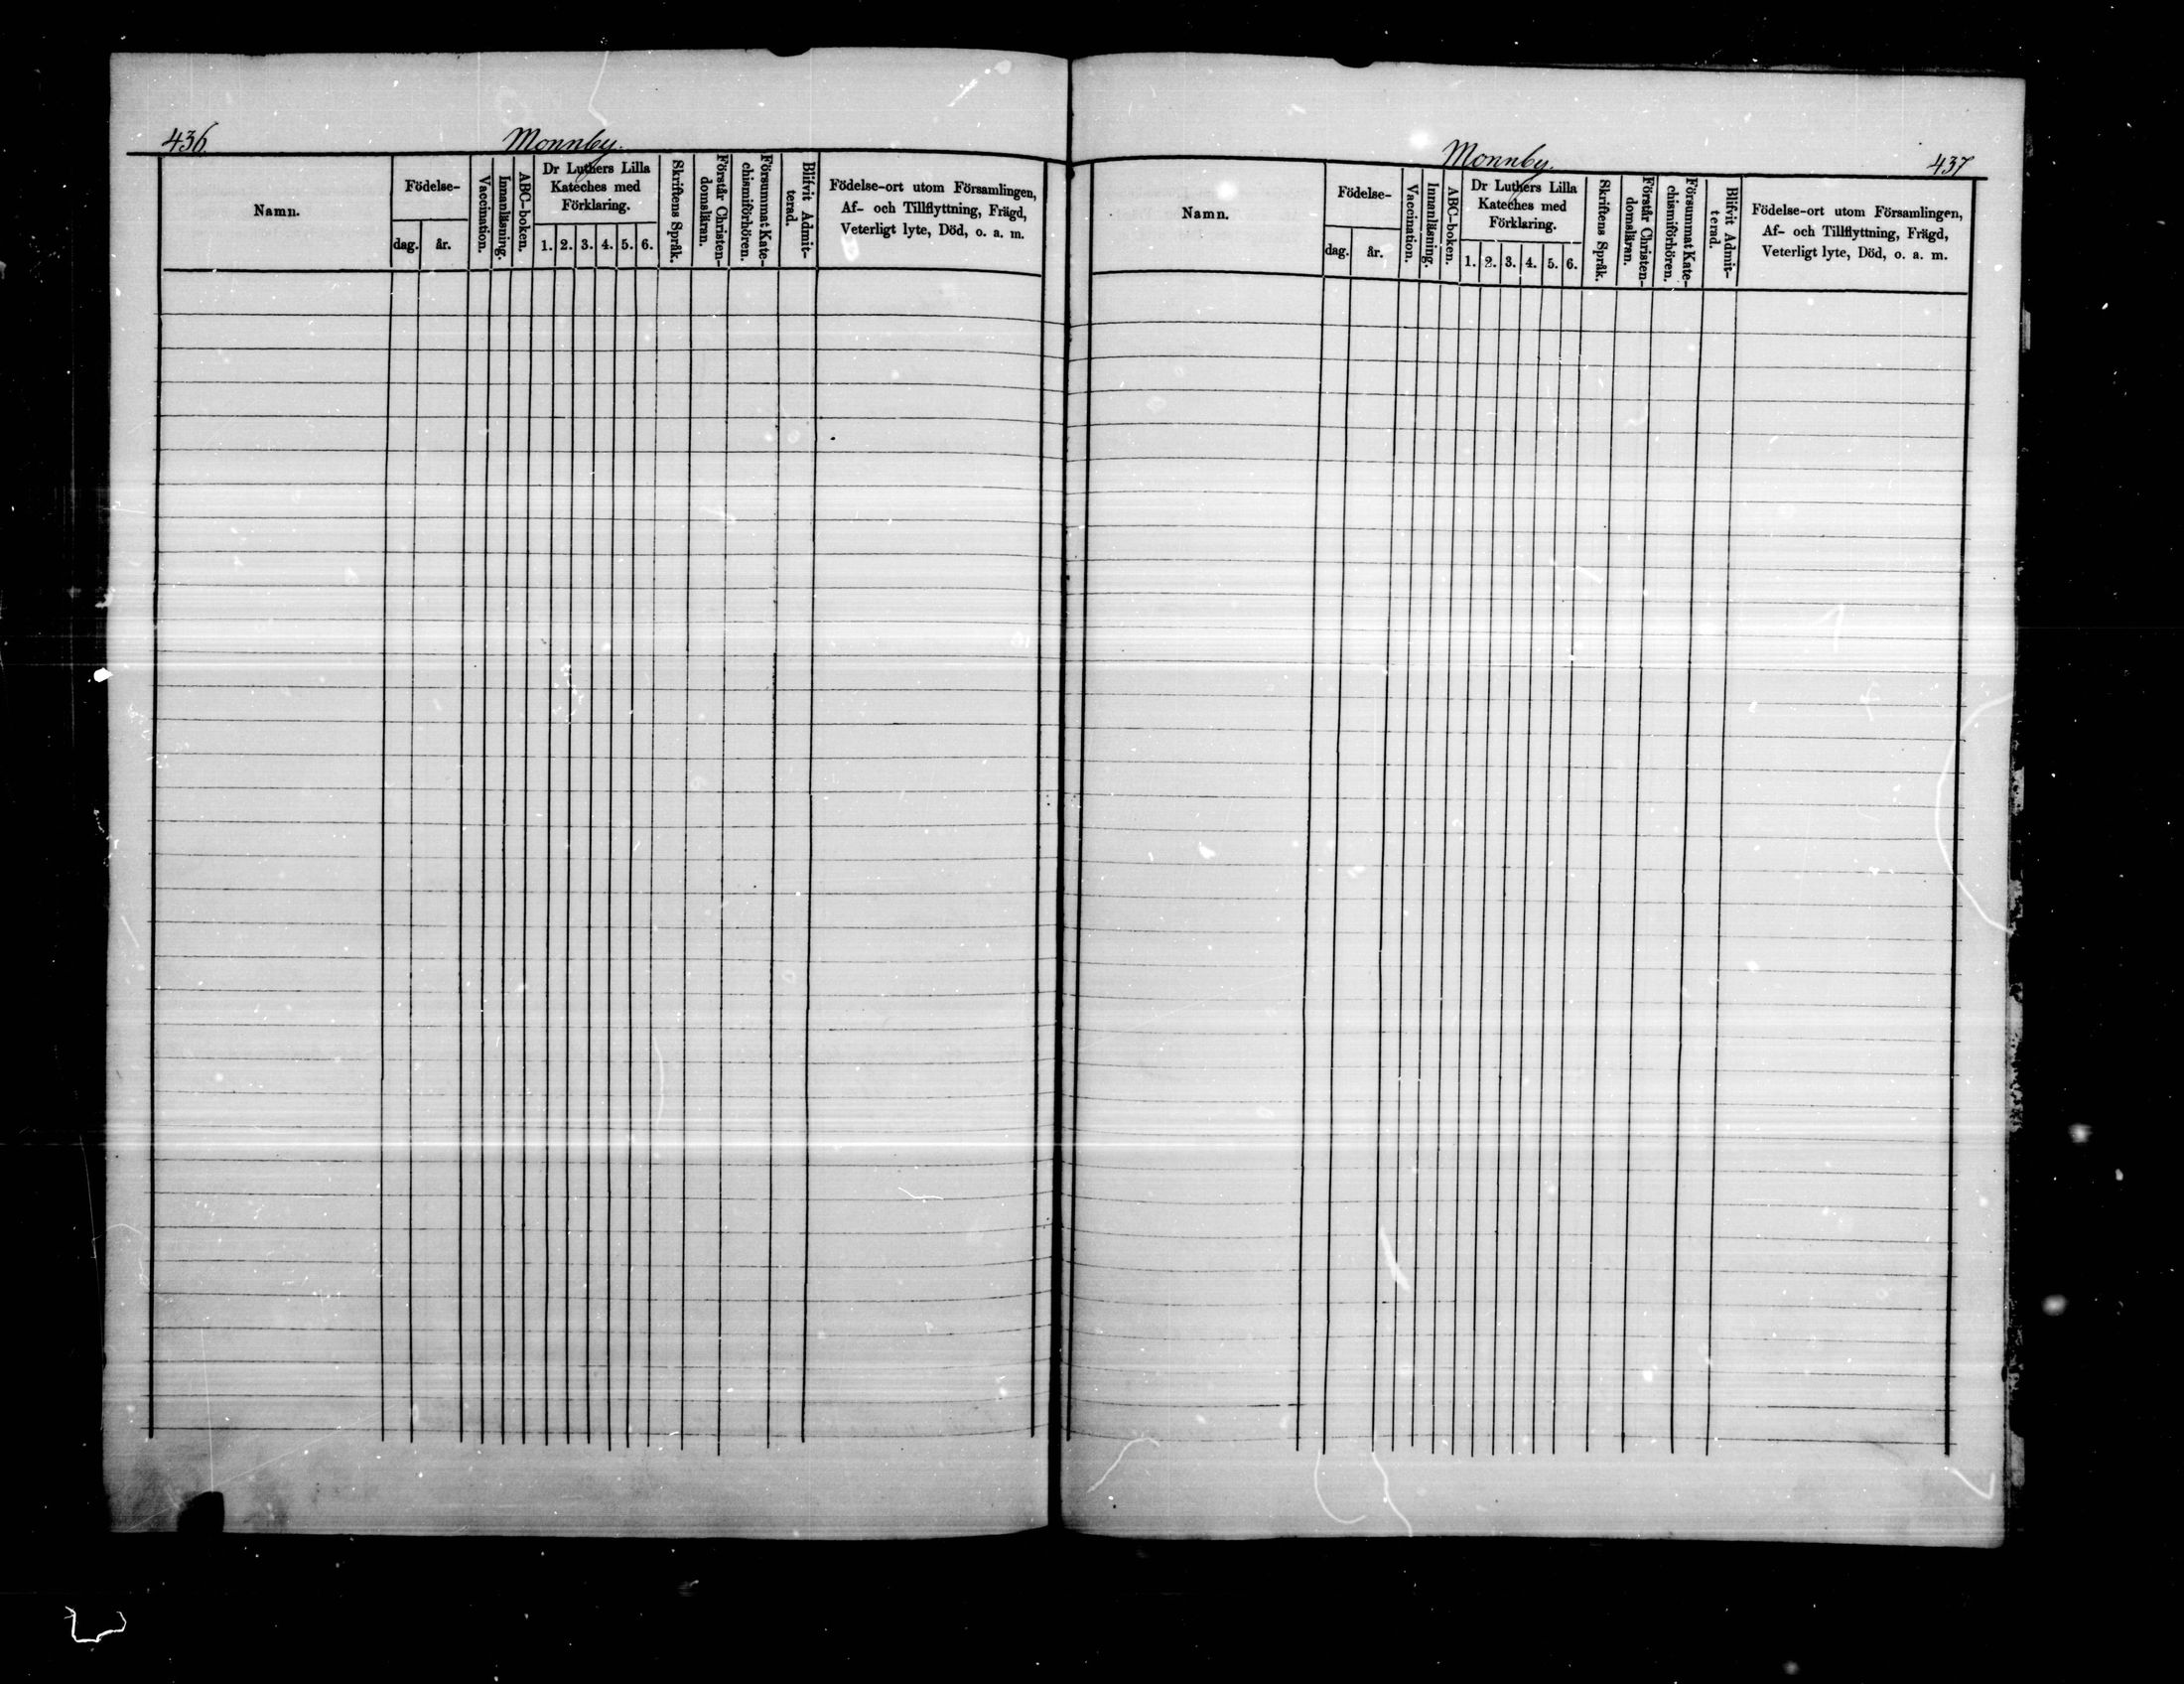 436.
Monnby.
Namn.
Födelse-
dag.
år.
Vaccination.
Innanläsning.
ABC-boken.
Dr Luthers Lilla
Kateches med
Förklaring.
1. 2. 3. 4. 5. 6.
Skriftens Språk.
Förstår Christen-
domsläran.
Försummat Kate-
chismiförhören.
Blifvit Admit-
terad.
Födelse-ort utom Församlingen,
Af- och Tillflyttning, Frägd,
Veterligt lyte, Död, o. a. m.
Monnby.
437
Namn.
Födelse-
dag.
år.
Vaccination.
Innanläsning.
ABC-boken.
Dr Luthers Lilla
Kateches med
Förklaring.
1. 2. 3. 4. 5. 6.
Skriftens Språk.
Förstår Christen-
domsläran.
Försummat Kate-
chismiförhören.
Blifvit Admit-
terad.
Födelse-ort utom Församlingen,
Af- och Tillflyttning, Frägd,
Veterligt lyte, Död, o. a. m.